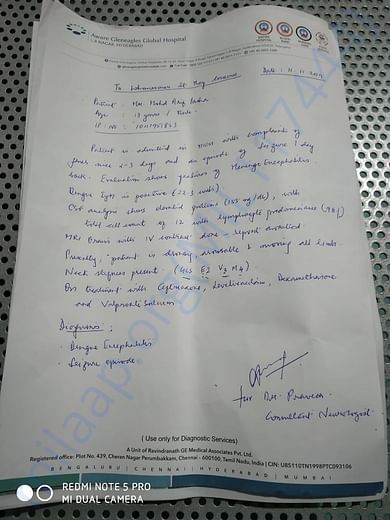 Aware Gleneagles Global Hospital
L.B NAGAR, HYDERABAD
Date : 11.11.2019
To whomsoever it may concern
Patient : Mr. Mohd
Age : 13 years / Male
IP No :
Patient is admitted in MICU with complaints of
fever since 2-3 days and an episode of seizure 1 day
back. Evaluation shows features of Meningo Encephalitis.
Dengue IgM is positive (22.3 units).
CSF analysis shows elevated proteins (155 mg/dl), with
total cell count of 12 with lymphocyte predominance (98%)
MRI Brain with IV contrast done - report awaited.
Presently, patient is drowsy, arousable & moving all limbs.
Neck stiffness present. (GCS E3 V2 M4).
On treatment with Levetiracetam, Dexamethasone
and Valproate Sodium
Diagnosis :
- Dengue Encephalitis
- Seizure episode.
for Dr. Praveen
Consultant Neurologist
( Use only for Diagnostic Services)
A Unit of Ravindranath GE Medical Associates Pvt. Ltd.
Registered office: Plot No. 439, Cheran Nagar Perumbakkam, Chennai - 600100, Tamil Nadu, India | CIN: U85110TN1998PTC093106
BENGALURU | CHENNAI | HYDERABAD | MUMBAI
REDMI NOTE 5 PRO
MI DUAL CAMERA